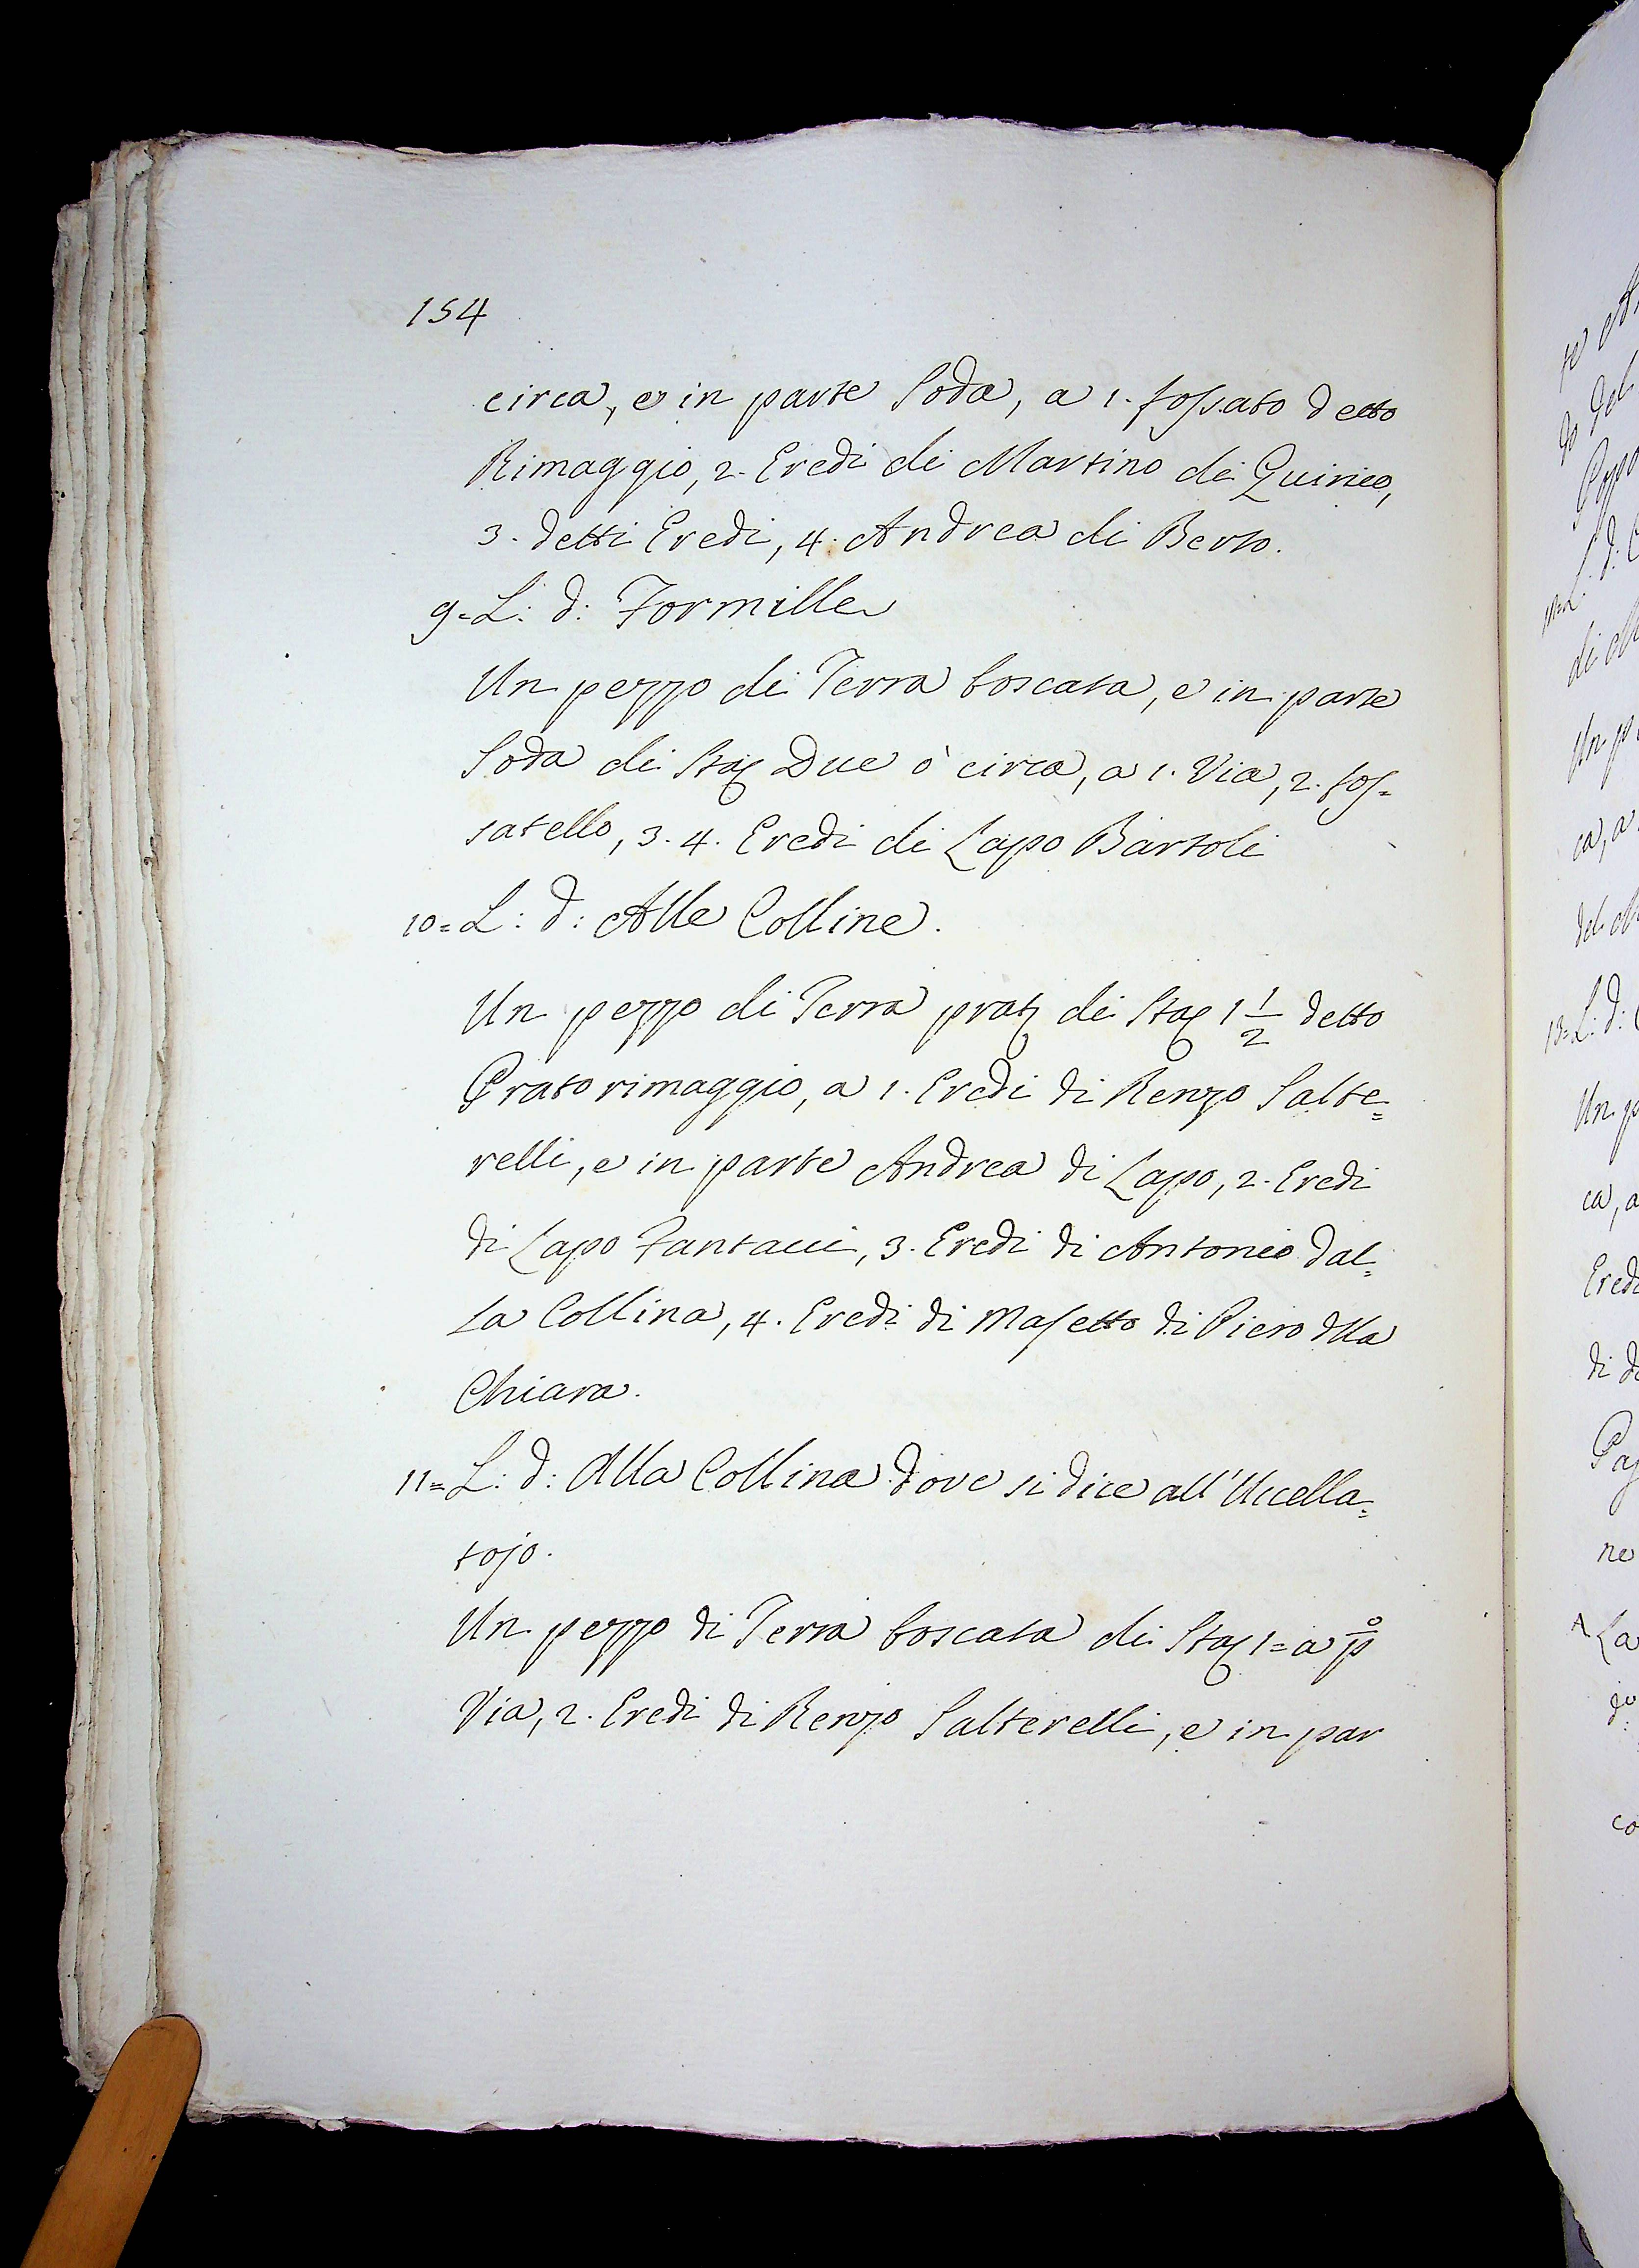 154
circa, e in parte Soda, a 1. fossato detto
Rimaggio, 2. Eredi di Martino di Quirico,
3. detti Eredi, 4. Andrea di Berto.
9= L: d: Formille
Un pezzo di Terra boscata, e in parte
Soda di Stas Due ò circa, a 1. Via, 2. fos=
satello, 3. 4. Eredi di Lapo Bartoli
10= L: d: Alle Colline.
Un pezzo di Terra prat di Stas 1 1/2 detto
Prato rimaggio, a 1. Eredi di Renzo Salte=
relli, e in parte Andrea di Lapo, 2. Eredi
di Lapo Fantacci, 3. Eredi di Antonio dal=
la Collina, 4. Eredi di Masetto di Piero dlla
Chiara.
11= L: d: Alla Collina dove si dice all'Uccella=
tojo.
Un pezzo di Terra boscata di Stas 1= a p̊
Via, 2. Eredi di Renzo Salterelli, e in par